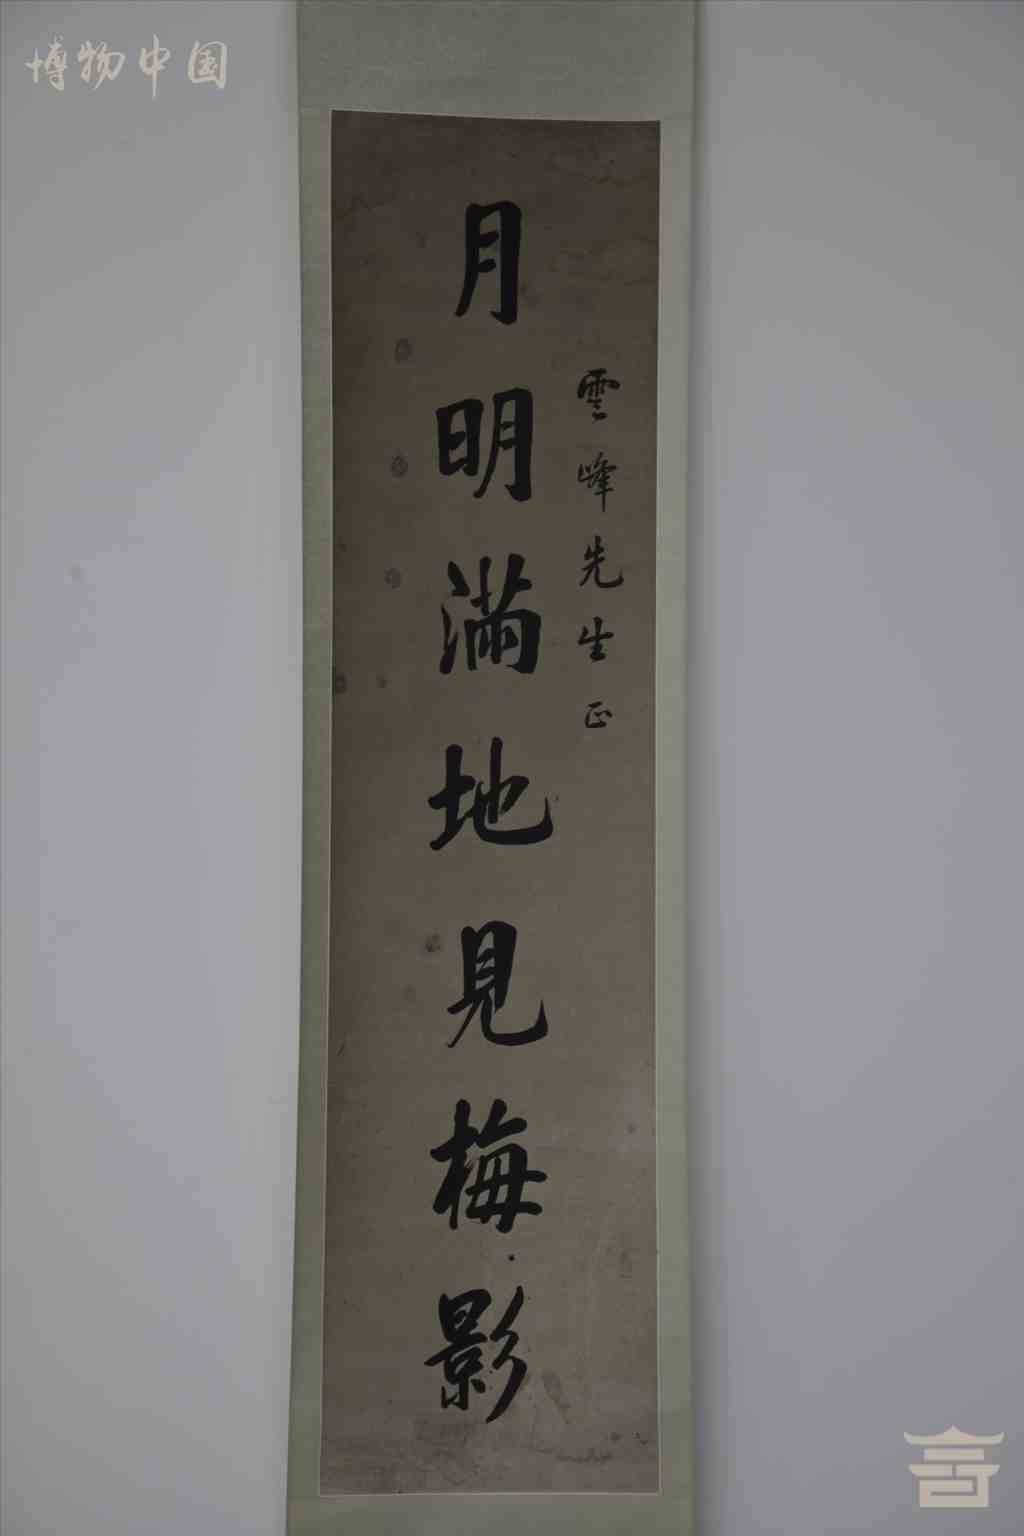 博物中国
雲峰先生正
月明滿地見梅影